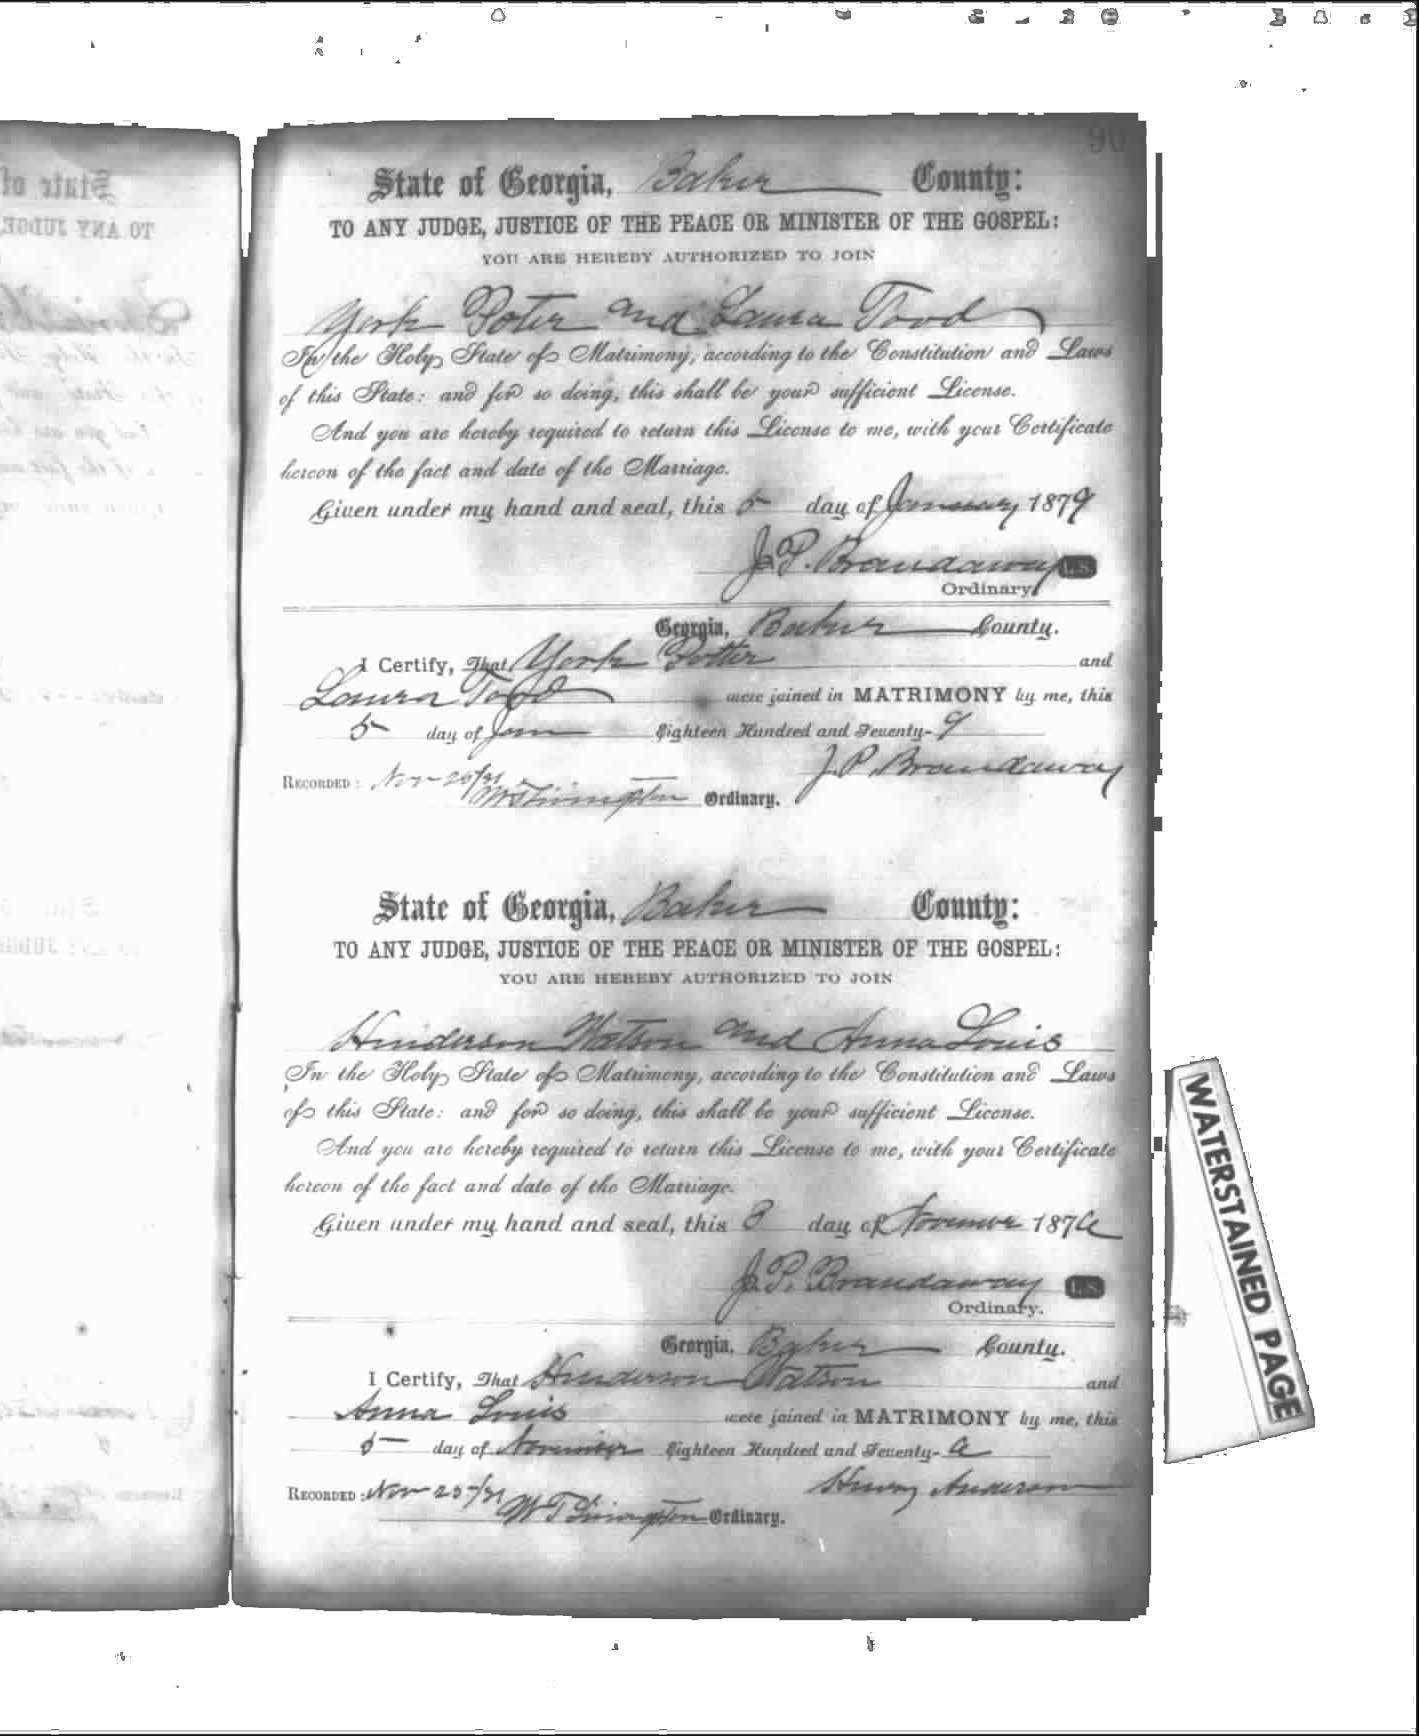 90
State of Georgia, Baker County:
TO ANY JUDGE, JUSTICE OF THE PEACE OR MINISTER OF THE GOSPEL:
YOU ARE HEREBY AUTHORIZED TO JOIN
York Poter and Laura Todd
In the Holy State of Matrimony, according to the Constitution and Laws
of this State: and for so doing, this shall be your sufficient License.
And you are hereby required to return this License to me, with your Certificate
hereon of the fact and date of the Marriage.
Given under my hand and seal, this 5 day of January 1879
J.P. Brandaway L.S.
Ordinary.
Georgia, Baker County.
I Certify, That York Potter and
Laura Todd were joined in MATRIMONY by me, this
5 day of Jan Eighteen Hundred and Seventy-9
J.P. Brandaway
RECORDED: Nov 25/81
Ordinary.
State of Georgia, Baker County:
TO ANY JUDGE, JUSTICE OF THE PEACE OR MINISTER OF THE GOSPEL:
YOU ARE HEREBY AUTHORIZED TO JOIN
Hinderson Watson and Anna Louis
In the Holy State of Matrimony, according to the Constitution and Laws
of this State: and for so doing, this shall be your sufficient License.
And you are hereby required to return this License to me, with your Certificate
hereon of the fact and date of the Marriage.
Given under my hand and seal, this 3 day of November 187
J.P. Brandaway L.S.
Ordinary.
Georgia, Baker County.
I Certify, That Hinderson Watson and
Anna Louis were joined in MATRIMONY by me, this
5 day of November Eighteen Hundred and Seventy-
Henry Anderson
RECORDED: Nov 25/81
W T Ordinary.
WATERSTAINED PAGE